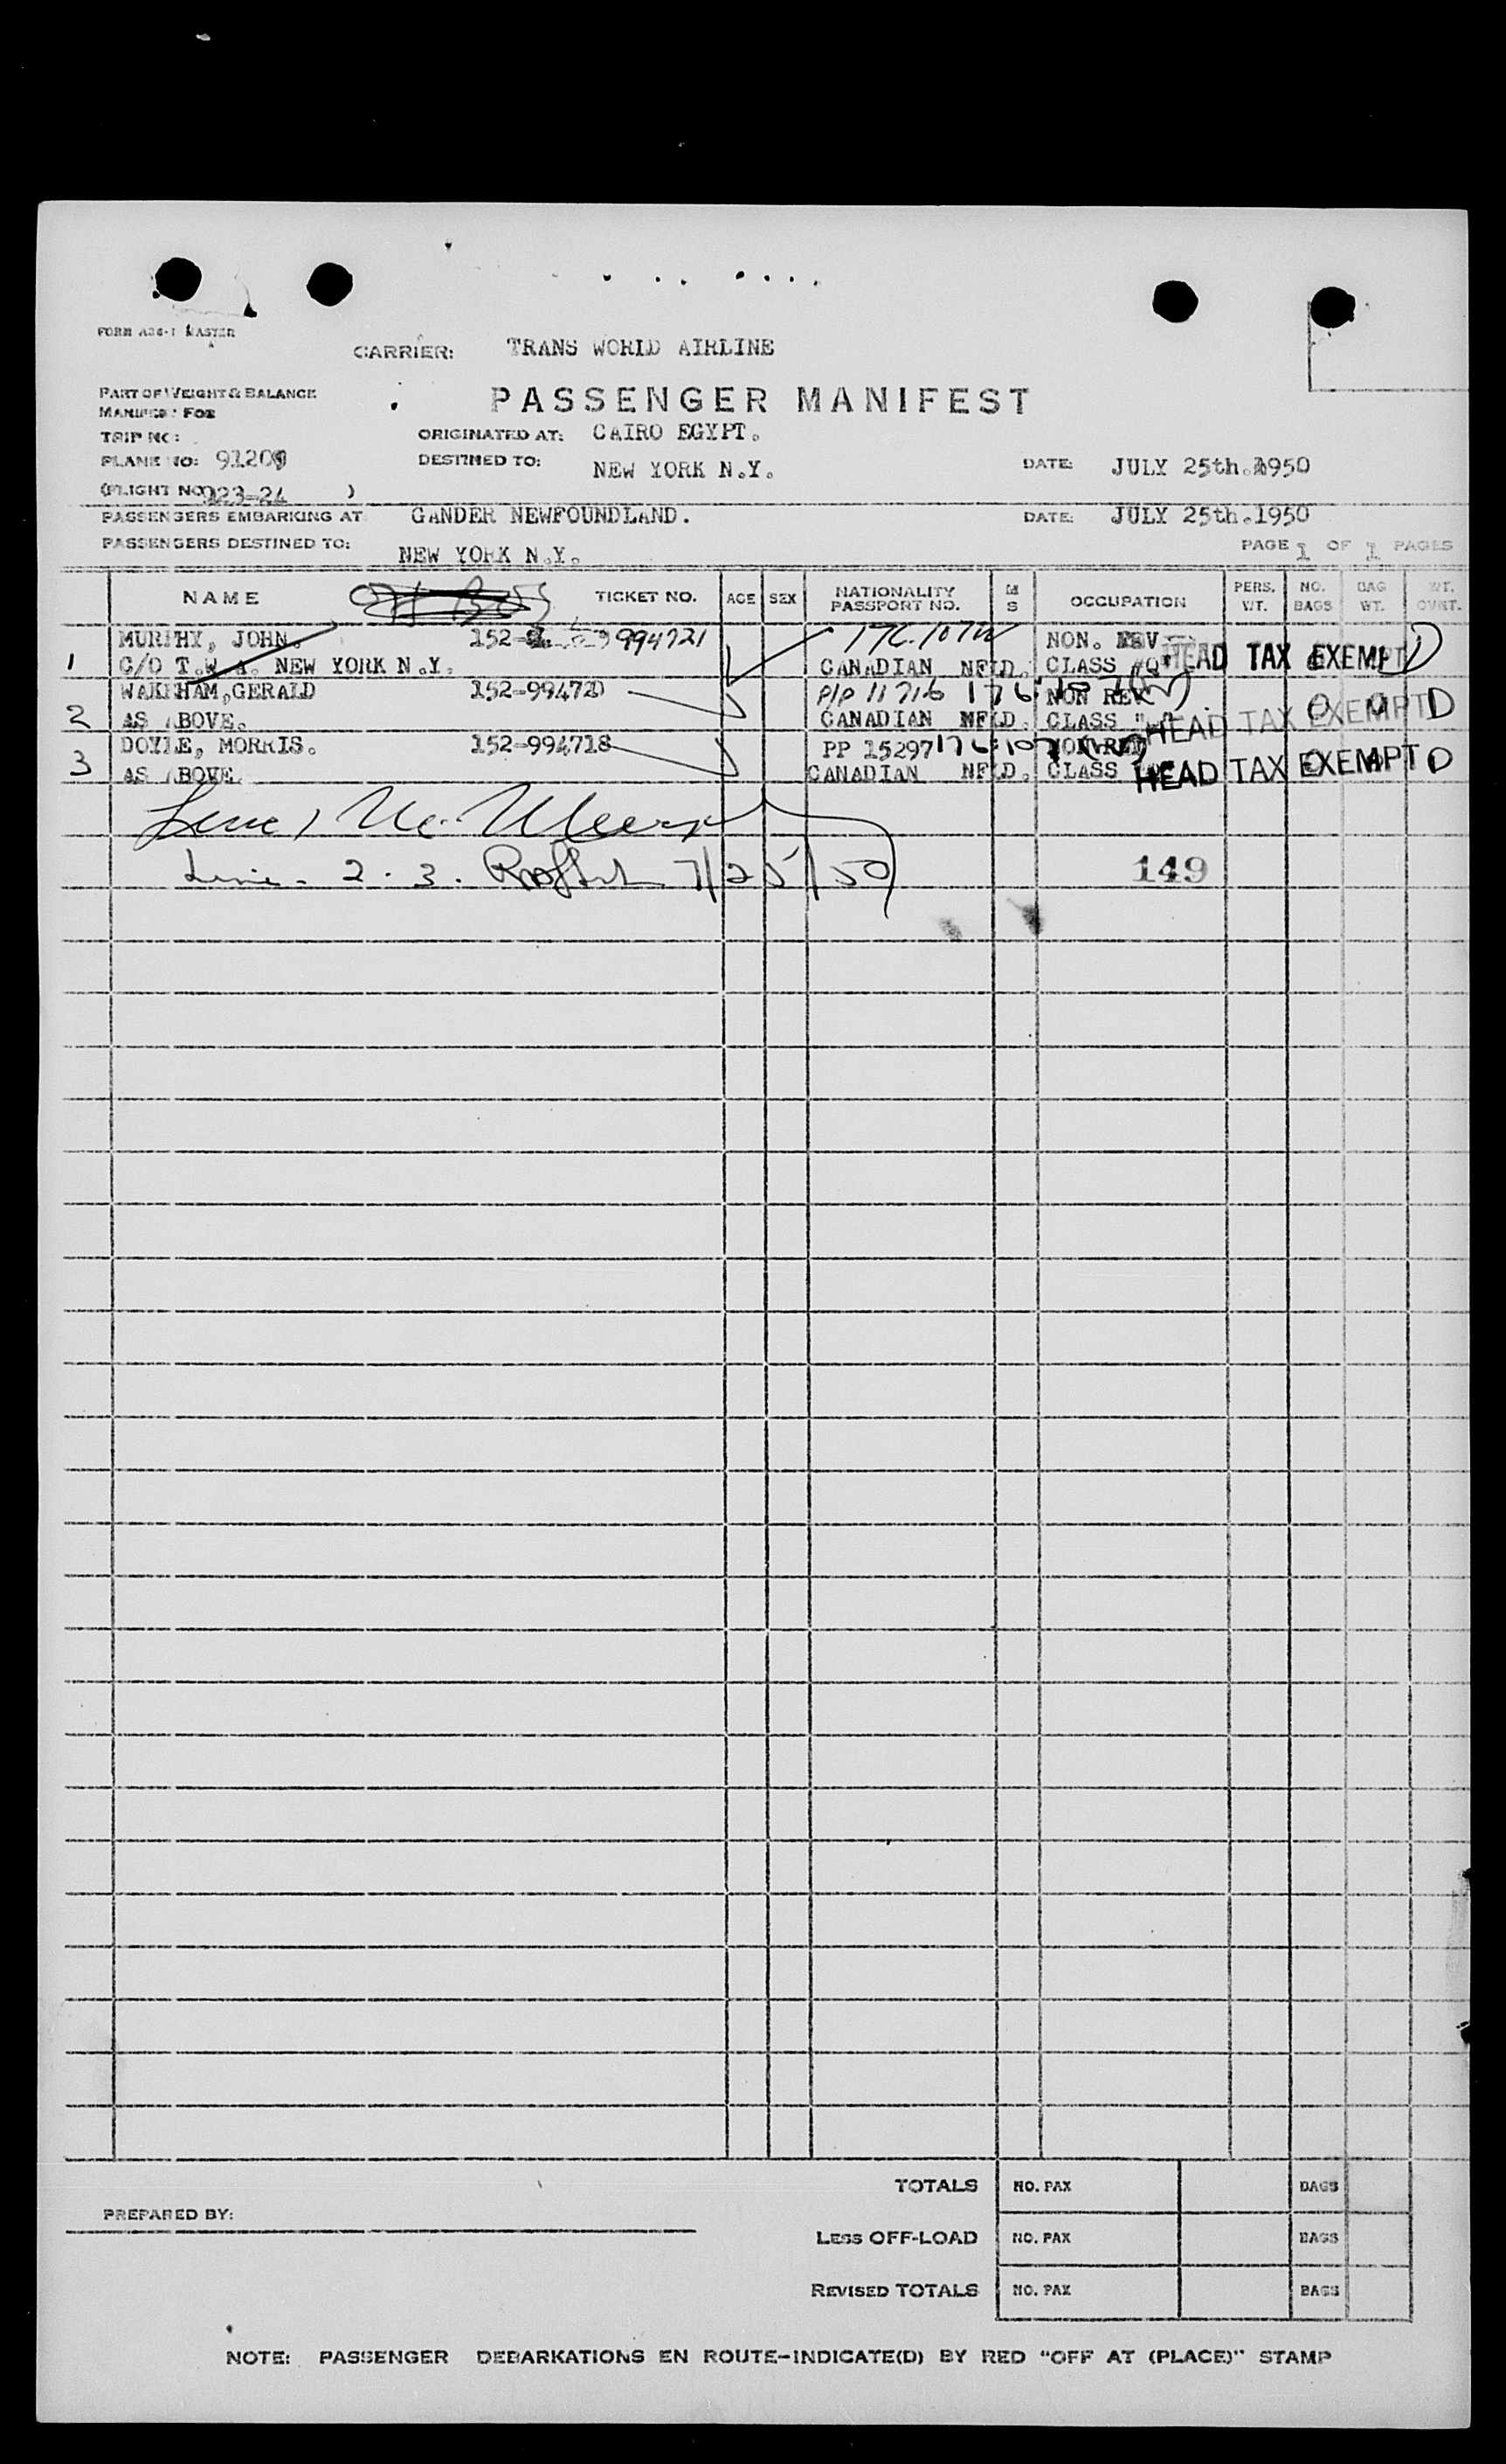 FORM A36-1 MASTER
CARRIER: TRANS WORLD AIRLINE
PART OF WEIGHT & BALANCE
MANIFEST FOR
PASSENGER MANIFEST
TRIP NO:
ORIGINATED AT: CAIRO EGYPT.
PLANE NO: 91209
DESTINED TO: NEW YORK N.Y.
DATE: JULY 25th.1950
(FLIGHT NO 923-24 )
PASSENGERS EMBARKING AT GANDER NEWFOUNDLAND.
DATE: JULY 25th.1950
PASSENGERS DESTINED TO: NEW YORK N.Y.
PAGE 1 OF 1 PAGES
NAME TICKET NO. AGE SEX NATIONALITY PASSPORT NO. M S OCCUPATION PERS. WT. NO. BAGS BAG WT. WT. OVHT.
MURPHY, JOHN. 152- 994721 176.107W NON. REV
1 C/O T.W.A. NEW YORK N.Y. CANADIAN NFLD. CLASS "Q" HEAD TAX EXEMPT D
WAKEHAM,GERALD 152-994720 P/P 11716 176.107(W) NON REV
2 AS ABOVE. CANADIAN NFLD. CLASS HEAD TAX EXEMPT D
DOYLE, MORRIS. 152-994718 PP 15297 176.107(W) NON REV
3 AS ABOVE CANADIAN NFLD. CLASS HEAD TAX EXEMPT D
Line 1
Line. 2. 3. 7/25/50
149
TOTALS NO. PAX BAGS
PREPARED BY:
LESS OFF-LOAD NO. PAX BAGS
REVISED TOTALS NO. PAX BAGS
NOTE: PASSENGER DEBARKATIONS EN ROUTE-INDICATE(D) BY RED "OFF AT (PLACE)" STAMP